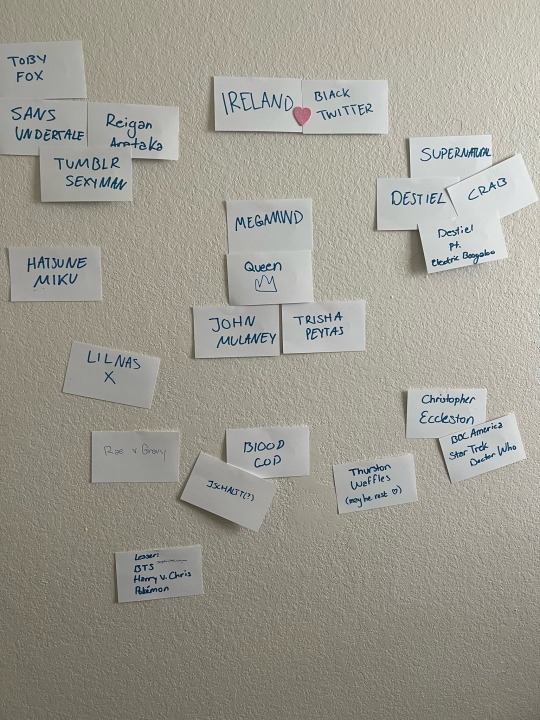 TOBY
FOX
SANS
UNDERTALE
Reigan
Arataka
TUMBLR
SEXYMAN
IRELAND
BLACK
TWITTER
SUPERNATURAL
DESTIEL
CRAB
Destiel
pt.
Electric Boogaloo
HATSUNE
MIKU
MEGAMIND
Queen
JOHN
MULANEY
TRISHA
PEYTAS
LIL NAS
X
Christopher
Eccleston
BBC America
Star Trek
Doctor Who
Roe v Gravy
BLOOD
GOD
JSCHLATT(?)
Thurston
Waffles
(may he rest ♡)
Lesser:
BTS
Harry v. Chris
Pokémon